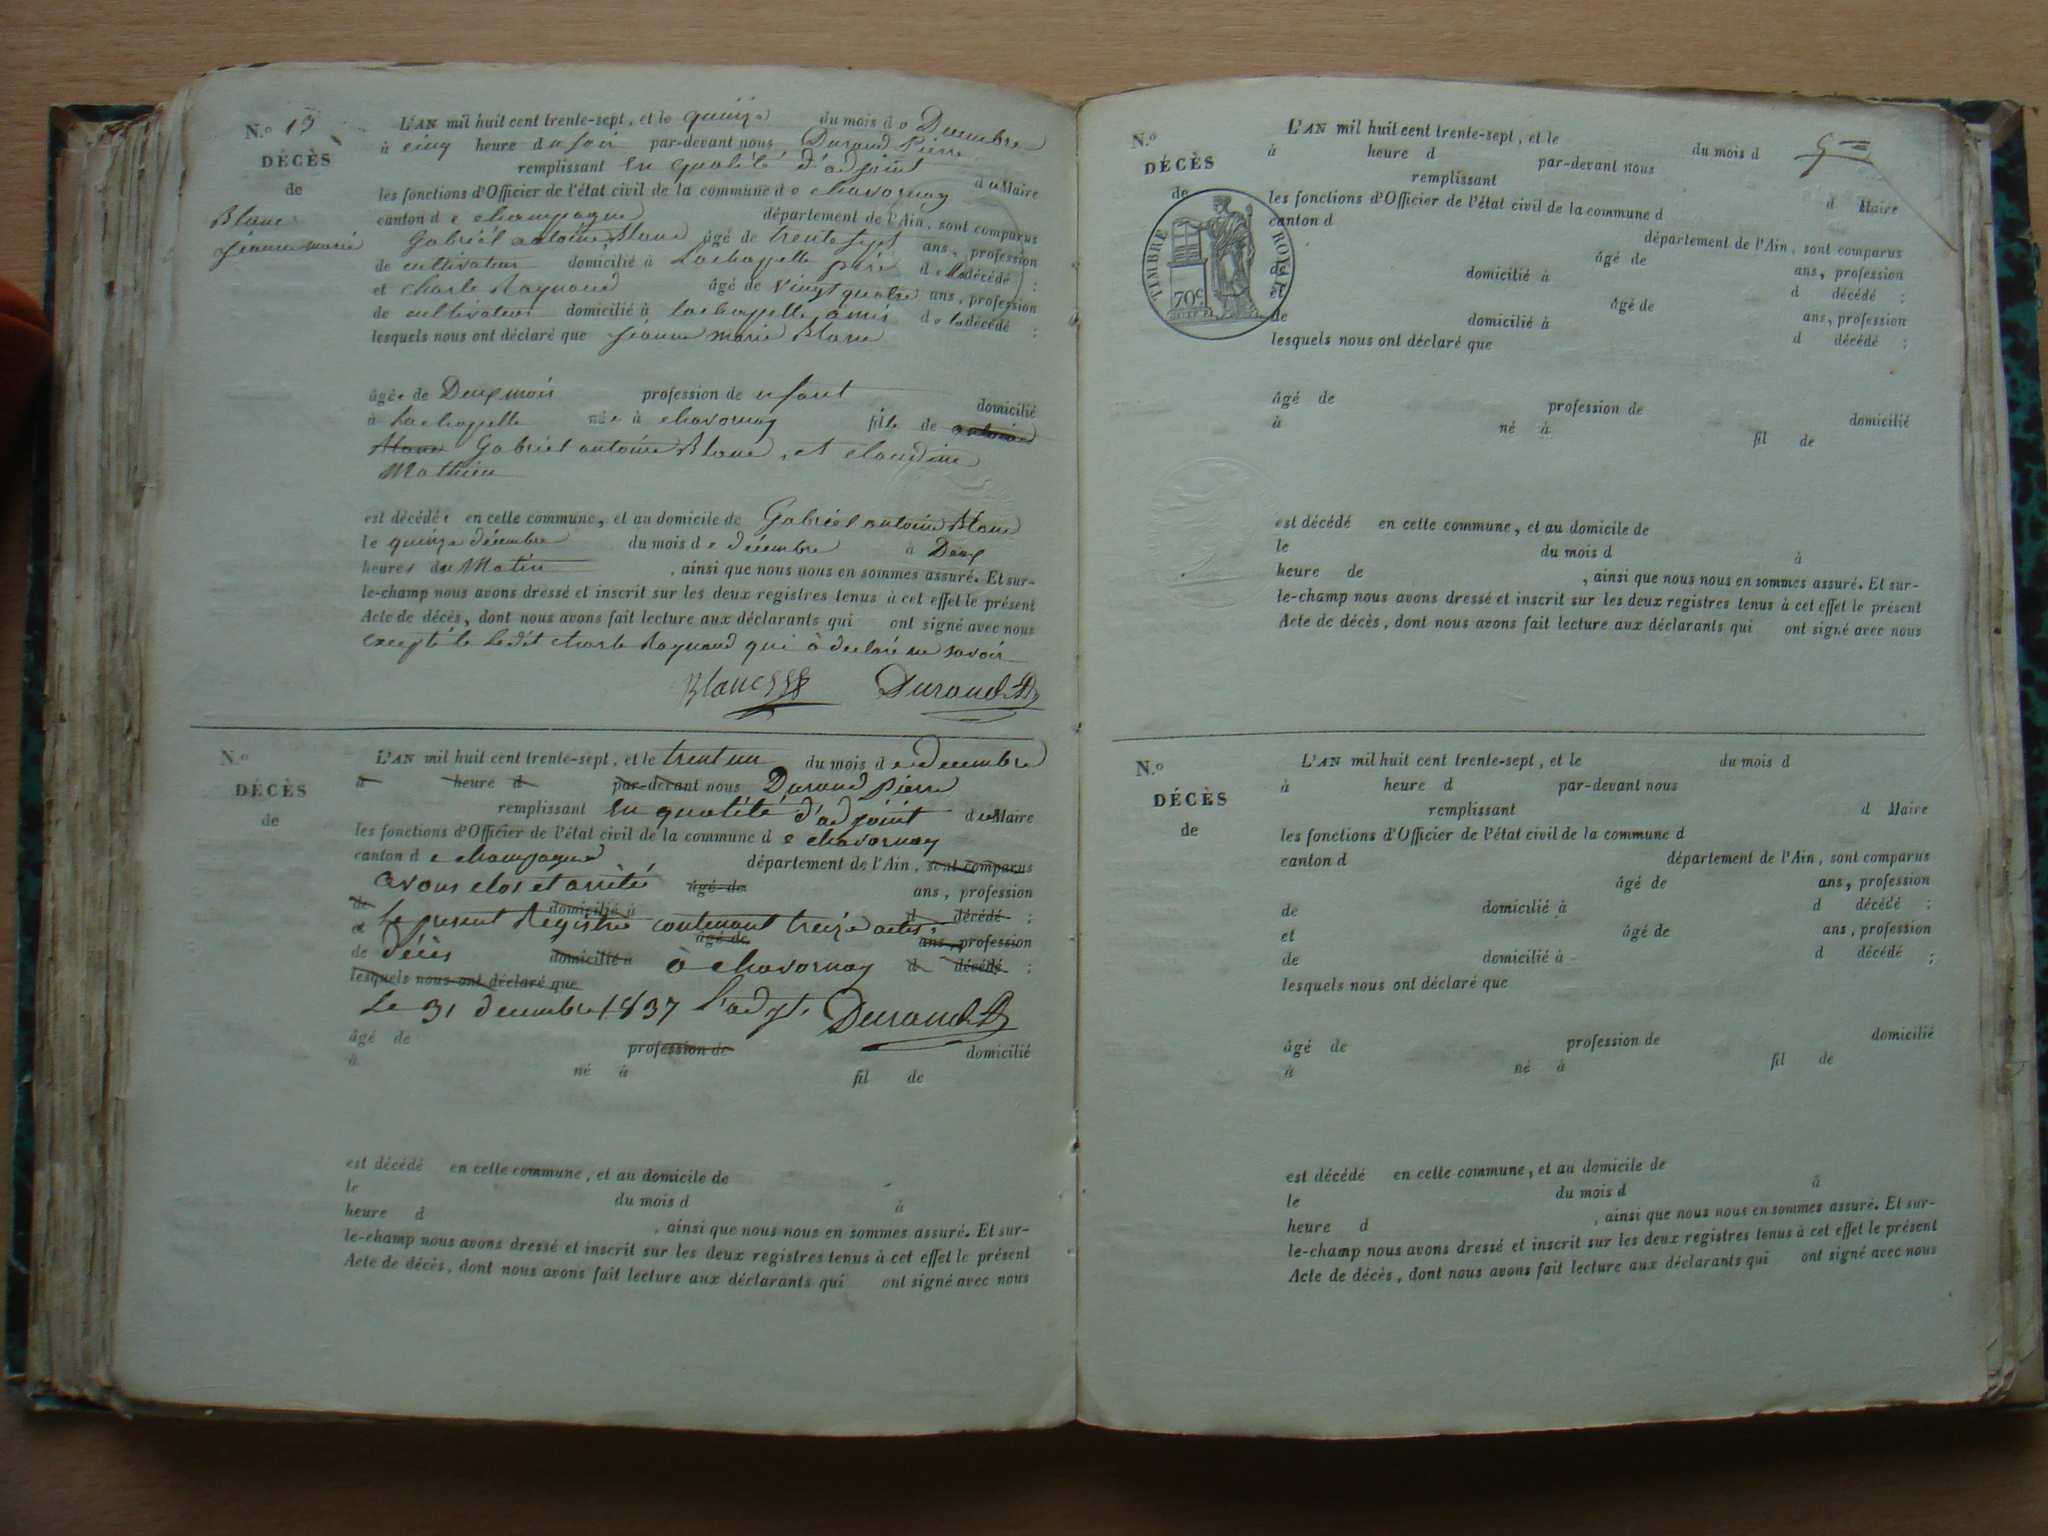 N.º 13
DÉCÈS
de
Blanc
jeanne marie
L'AN mil huit cent trente-sept, et le quinze du mois de Decembre
à cinq heure du soir par-devant nous Durand Pierre
remplissant en qualité d'adjoint du Maire
les fonctions d'Officier de l'état civil de la commune de chavornay
canton de champagne département de l'Ain, sont comparus
Gabriel antoine Blanc âgé de trente sept ans, profession
de cultivateur domicilié à Lachapelle père de la décédé ;
et charle Raynaud âgé de vingt quatre ans, profession
de cultivateur domicilié à Lachappelle amis de la décédé ;
lesquels nous ont déclaré que jeanne marie Blanc
âgée de Deux mois profession de enfant domicilié
à Lachapelle née à chavornay fille de antoine
Blanc Gabriel antoine Blanc, et claudine
Mathieu
est décédée en cette commune, et au domicile de Gabriel antoine Blanc
le quinze décembre du mois de décembre à Deux
heures du Matin , ainsi que nous nous en sommes assuré. Et sur-
le-champ nous avons dressé et inscrit sur les deux registres tenus à cet effet le présent
Acte de décès, dont nous avons fait lecture aux déclarants qui ont signé avec nous
excepté le Ledit charle Raynaud qui à declaré ne savoir
Blanc Durand
N.º
DÉCÈS
de
L'AN mil huit cent trente-sept, et le trent un du mois de decembre
à heure d par-devant nous Durand Pierre
remplissant en qualité d'adjoint du Maire
les fonctions d'Officier de l'état civil de la commune de chavornay
canton de champagne département de l'Ain, sont comparus
avons clos et arrêté âgé de ans, profession
de domicilié à d décédé ;
et le present Registre contenant treize actes
âgé de ans, profession
de décès domicilié à à chavornay d décédé ;
lesquels nous ont déclaré que
Le 31 decembre 1837 l'adjt. Durand
âgé de profession de domicilié
à né à fil de
est décédé en cette commune, et au domicile de
le du mois d à
heure d , ainsi que nous nous en sommes assuré. Et sur-
le-champ nous avons dressé et inscrit sur les deux registres tenus à cet effet le présent
Acte de décès, dont nous avons fait lecture aux déclarants qui ont signé avec nous
N.º
DÉCÈS
de
TIMBRE ROYAL
70c
L'AN mil huit cent trente-sept, et le du mois d
à heure d par-devant nous
remplissant d Maire
les fonctions d'Officier de l'état civil de la commune d
canton d département de l'Ain, sont comparus
âgé de ans, profession
de domicilié à d décédé ;
et âgé de ans, profession
de domicilié à d décédé ;
lesquels nous ont déclaré que
âgé de profession de domicilié
à né à fil de
est décédé en cette commune, et au domicile de
le du mois d à
heure de , ainsi que nous nous en sommes assuré. Et sur-
le-champ nous avons dressé et inscrit sur les deux registres tenus à cet effet le présent
Acte de décès, dont nous avons fait lecture aux déclarants qui ont signé avec nous
N.º
DÉCÈS
de
L'AN mil huit cent trente-sept, et le du mois d
à heure d par-devant nous
remplissant d Maire
les fonctions d'Officier de l'état civil de la commune d
canton d département de l'Ain, sont comparus
âgé de ans, profession
de domicilié à d décédé ;
et âgé de ans, profession
de domicilié à d décédé ;
lesquels nous ont déclaré que
âgé de profession de domicilié
à né à fil de
est décédé en cette commune, et au domicile de
le du mois d à
heure d , ainsi que nous nous en sommes assuré. Et sur-
le-champ nous avons dressé et inscrit sur les deux registres tenus à cet effet le présent
Acte de décès, dont nous avons fait lecture aux déclarants qui ont signé avec nous